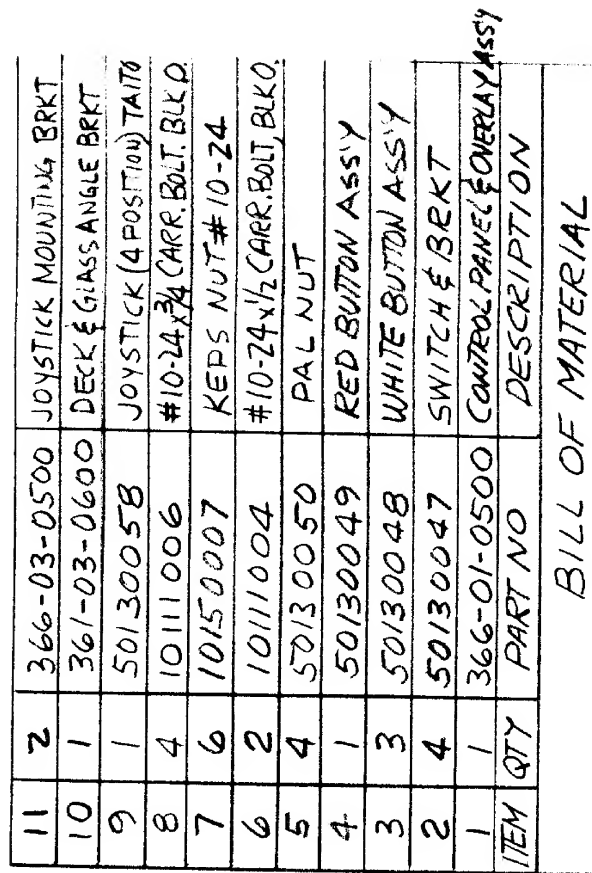 11 2 366-03-0500 JOYSTICK MOUNTING BRKT
10 1 361-03-0600 DECK & GLASS ANGLE BRKT
9 1 50130058 JOYSTICK (4 POSITION) TAITO
8 4 10111006 #10-24 x 3/4 CARR. BOLT. BLK O.
7 6 10150007 KEPS NUT #10-24
6 2 10111004 #10-24 x 1/2 CARR. BOLT, BLK O.
5 4 50130050 PAL NUT
4 1 50130049 RED BUTTON ASS'Y
3 3 50130048 WHITE BUTTON ASS'Y
2 4 50130047 SWITCH & BRKT
1 1 366-01-0500 CONTROL PANEL & OVERLAY ASS'Y
ITEM QTY PART NO DESCRIPTION
BILL OF MATERIAL